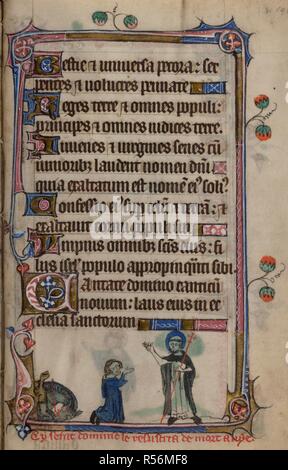 Bestie et universa pecora: ser
pentes et volucres pennate.
Reges terre et omnes populi:
principes et omnes iudices terre.
Iuvenes et virgines senes cu
iunioribus laudent nomen dni:
quia exaltatum est nomen ei' soli'
Confessio ei' sup celu et terra: et
exaltavit cornu populi sui
Ympnus omnibus scis eius: fi
liis isrl populo appropinquanti sibi
Cantate domino canticu
novum: laus eius in ec
clesia sanctorum
Cy seint dominic le resuscita de mort a vie.
alamy
Image ID: R56MF8
www.alamy.com